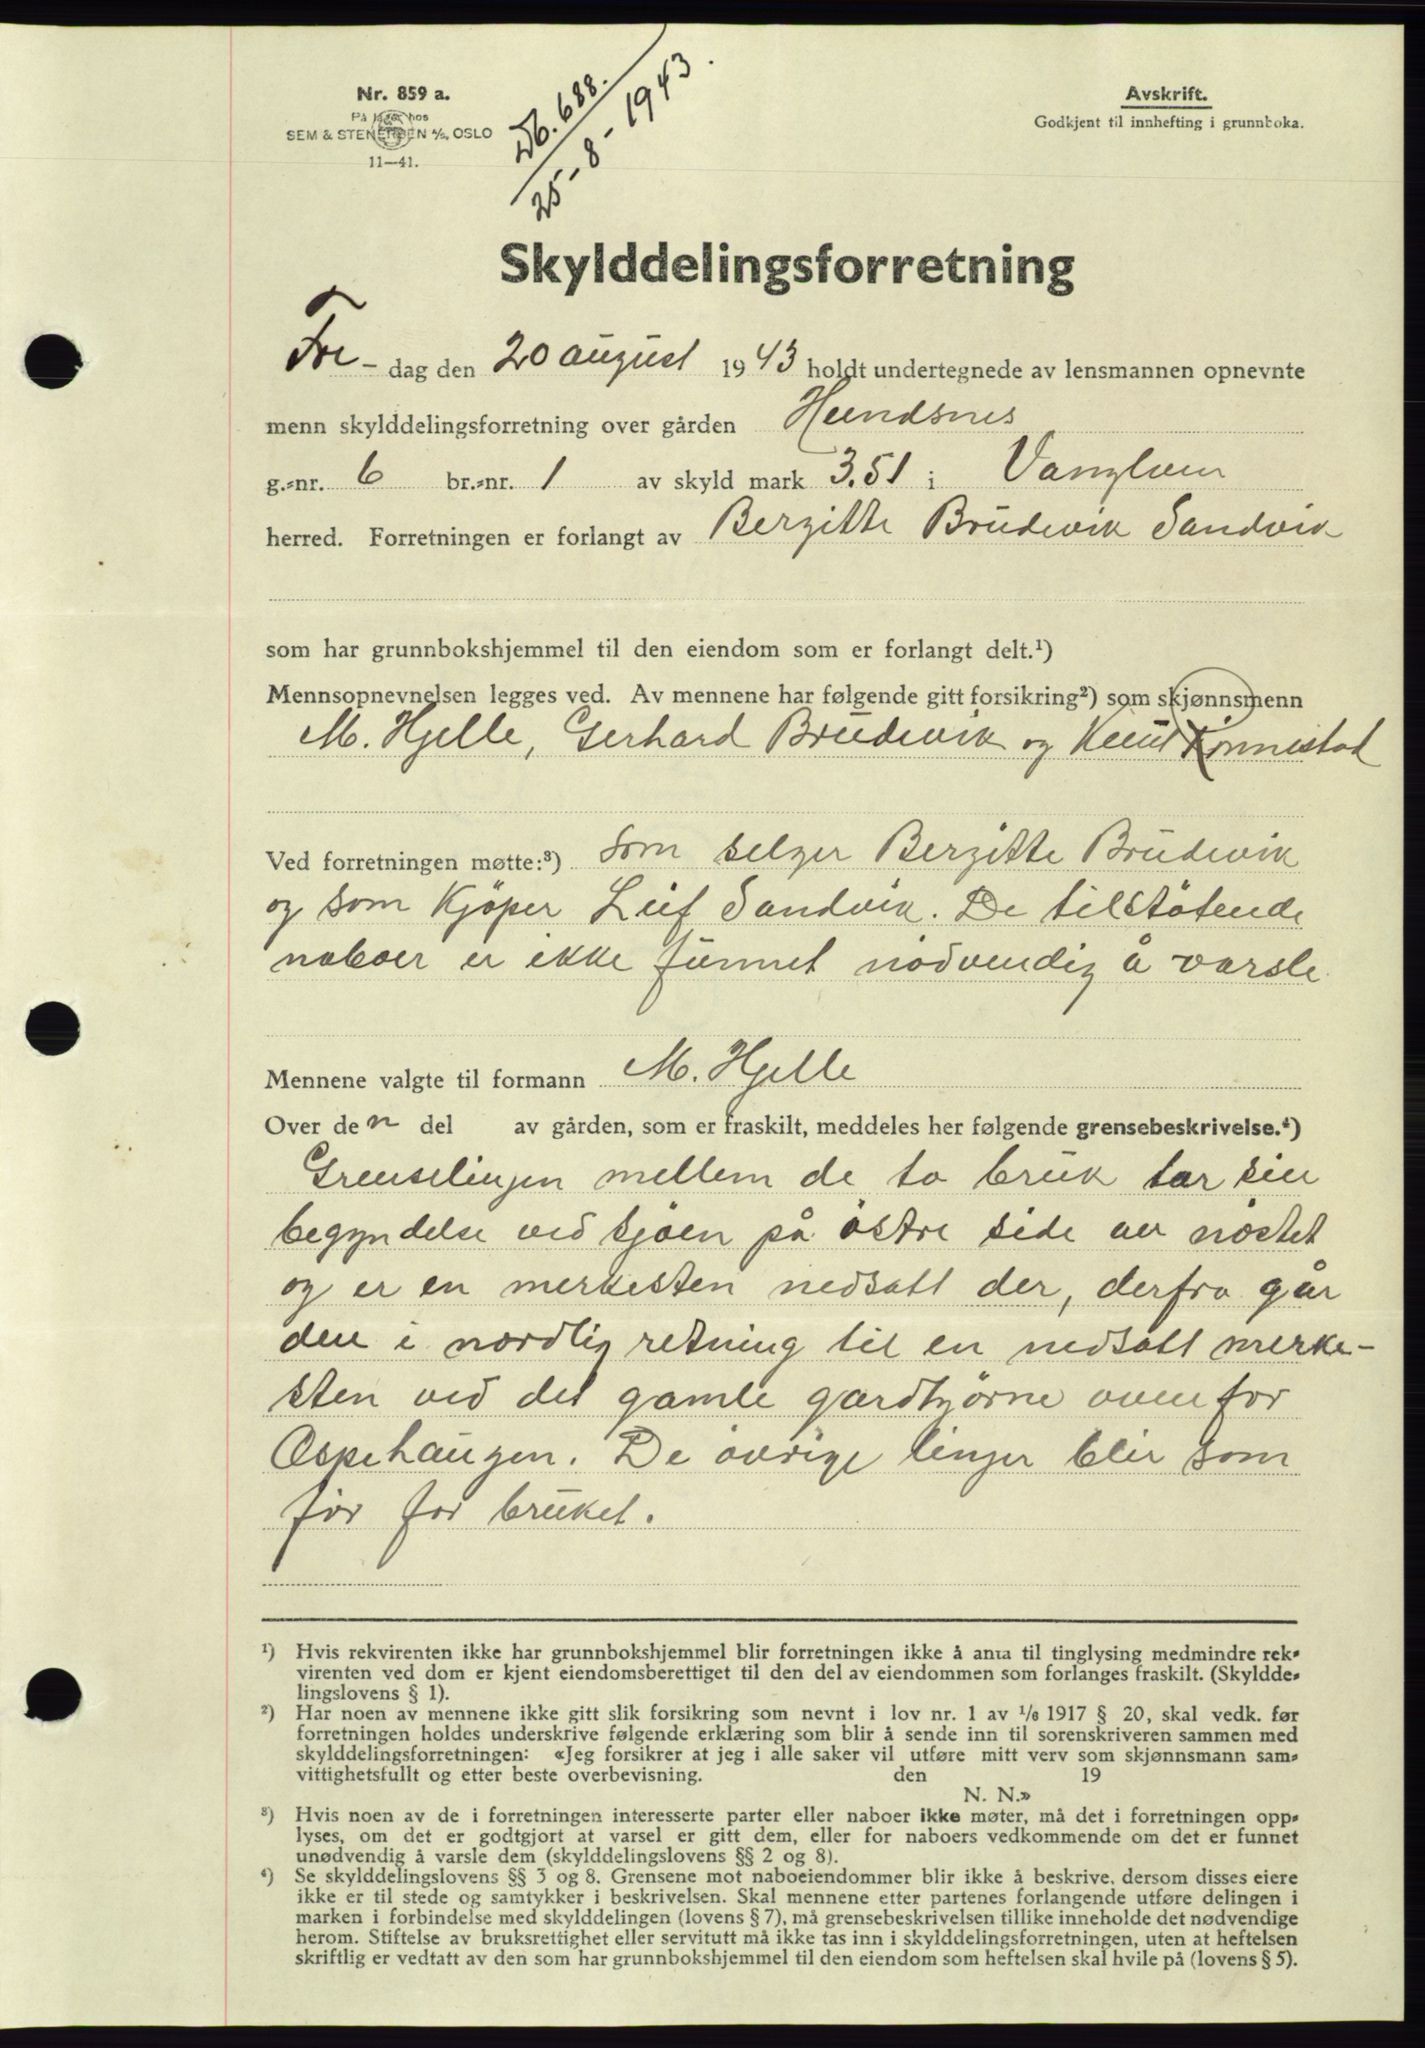 Nr. 859 a.
På lager hos
SEM & STENERSEN A/S, OSLO
11—41.
Db. 688.
25-8-1943.
Avskrift.
Godkjent til innhefting i grunnboka.
Skylddelingsforretning
Fre- dag den 20 august 1943 holdt undertegnede av lensmannen opnevnte
menn skylddelingsforretning over gården Hundsnes
g.-nr. 6 br.-nr. 1 av skyld mark 3.51 i Vanylven
herred. Forretningen er forlangt av Bergitte Brudevik Sandvik
som har grunnbokshjemmel til den eiendom som er forlangt delt.¹)
Mennsopnevnelsen legges ved. Av mennene har følgende gitt forsikring²) som skjønnsmenn
M. Hjelle, Gerhard Brudevik og Knut Rönnestad
Ved forretningen møtte:³) som selger Bergitte Brudevik
og som Kjöper Leif Sandvik. De tilstötende
naboer er ikke funnet nödvendig å varsle
Mennene valgte til formann M. Hjelle
Over den del av gården, som er fraskilt, meddeles her følgende grensebeskrivelse.⁴)
Grenselinjen mellem de to bruk tar sin
begyndelse ved sjöen på östre side av nöstet
og er en merkesten nedsatt der, derfra går
den i nordlig retning til en nedsatt merke-
sten ved det gamle gardhjörne ovenfor
Ospehaugen. De övrige linjer blir som
för for bruket.
¹) Hvis rekvirenten ikke har grunnbokshjemmel blir forretningen ikke å anta til tinglysing medmindre rek-
virenten ved dom er kjent eiendomsberettiget til den del av eiendommen som forlanges fraskilt. (Skyldde-
lingslovens § 1).
²) Har noen av mennene ikke gitt slik forsikring som nevnt i lov nr. 1 av 1/6 1917 § 20, skal vedk. før
forretningen holdes underskrive følgende erklæring som blir å sende inn til sorenskriveren sammen med
skylddelingsforretningen: «Jeg forsikrer at jeg i alle saker vil utføre mitt verv som skjønnsmann sam-
vittighetsfullt og etter beste overbevisning. den 19
N. N.»
³) Hvis noen av de i forretningen interesserte parter eller naboer ikke møter, må det i forretningen opp-
lyses, om det er godtgjort at varsel er gitt dem, eller for naboers vedkommende om det er funnet
unødvendig å varsle dem (skylddelingslovens §§ 2 og 8).
⁴) Se skylddelingslovens §§ 3 og 8. Grensene mot naboeiendommer blir ikke å beskrive, dersom disses eiere
ikke er til stede og samtykker i beskrivelsen. Skal mennene etter partenes forlangende utføre delingen i
marken i forbindelse med skylddelingen (lovens § 7), må grensebeskrivelsen tillike inneholde det nødvendige
herom. Stiftelse av bruksrettighet eller servitutt må ikke tas inn i skylddelingsforretningen, uten at heftelsen
skriftlig er vedtatt av den som har grunnbokshjemmel til den eiendom som heftelsen skal hvile på (lovens § 5).